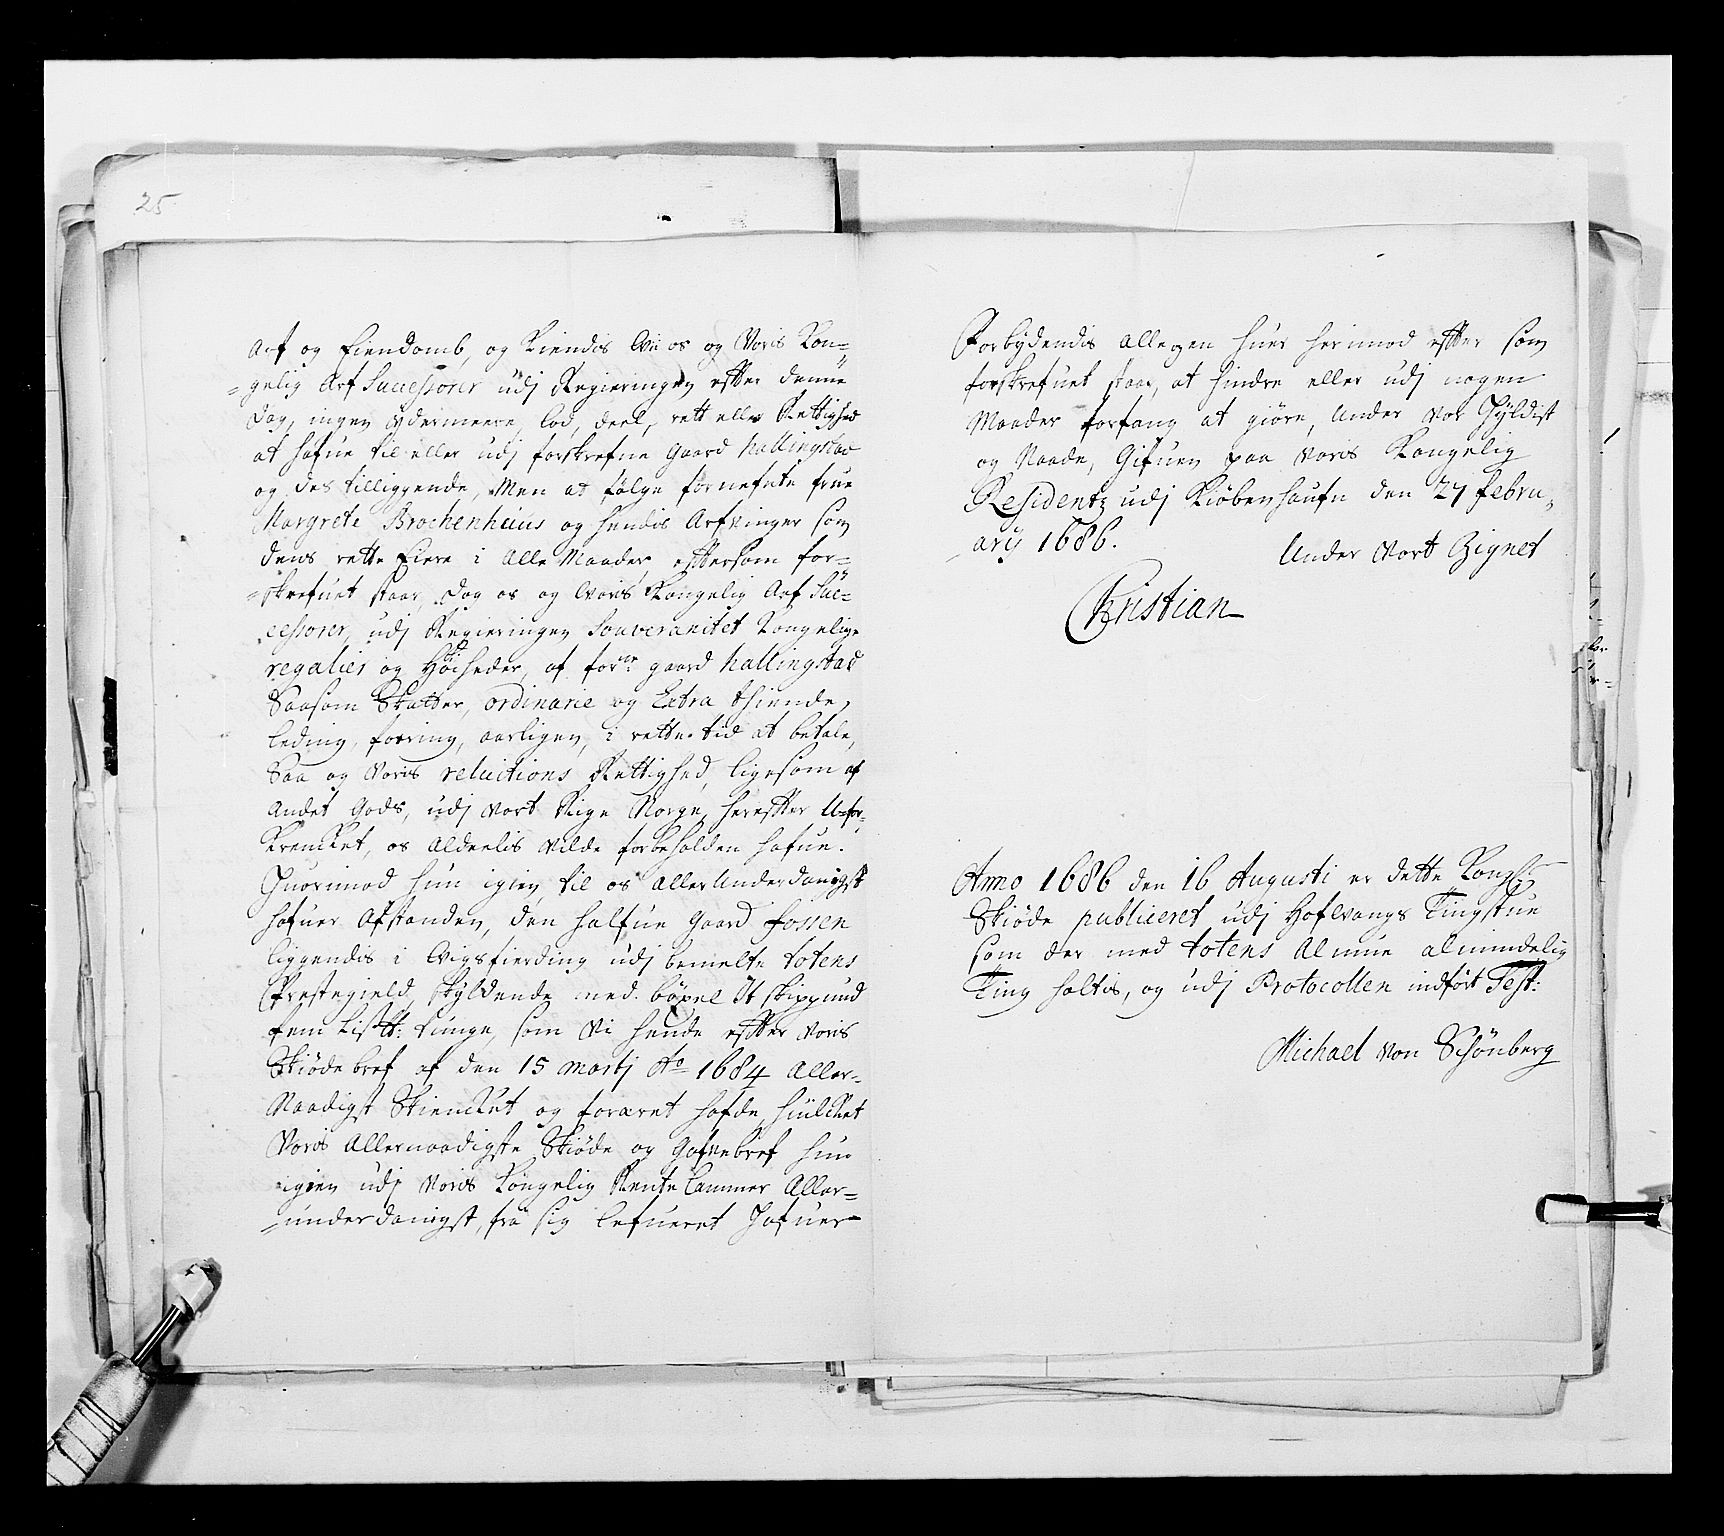 25
Arf og Eiendomb, og Kiendis Wii os og Voris Kon=
=gelig Arf Successorer udj Regieringen effter denne
dag, ingen ydermeere, lod, deel, rett eller Rettighed
at hafue til eller udj forskrefne Gaard Hallingstad
og des tilliggende, Men at følge förnefnte frue
Margrete Brochenhuus og hendis Arfvinger som
dens rette Eiere i Alle Maader, effttersom for=
=skrefuet staar, Dog os og Woris Kongelig Arf Suc=
cessorer, udj Regieringen Souveranitet Kongelige
regalier og Høiheder, af forne gaard Hallingstad
Saasom Skatter, ordinarie og Extra thiende,
leding, foering, aarligen, i rette tid at betale,
Saa og Voris reluitions Rettighed, ligesom af
Andet Gods, udj Vort Rige Norge, hereffter U=for=
Krencket, os Aldeelis Vilde forbeholden hafue.
Huorimod hun igien til os Aller Underdanigst
hafuer Afstanden, den halfue Gaard Fossen
liggendis i Wigsfierding udj bemelte totens
Prestegield, skyldende med böxel It skippund
fem List: tunge, som Vi hende effter Voris
Skiöde bref af den 15 Martj Ao 1684 Aller=
Naadigst Skiencket og foræret hafde, huilcket
Voris Allernaadigste Skiöde og Gafvebref hun
igien udj Voris Kongelig Rente Cammer Aller=
=underdanigst, fra sig lefueret Hafuer

Forbydendis Alle og en huer herimod effter som
forskrefuet staar, at hindre eller udj nogen
Maader forfang at giöre, Under Vor Hyldist
og Naade, Gifuen paa Voris Kongelig
Residentz udj Kiöbenhaufn den 27 febru=
ary 1686.
Under Vort Zignet
Christian
Anno 1686 den 16 Augusti er dette Kongl:
Skiöde publiceret udj Hoflvangs Tingstue
som der med totens Almue almindelig
Ting holtis, og udj Protocollen indfört Test:
Michael von Schönberg